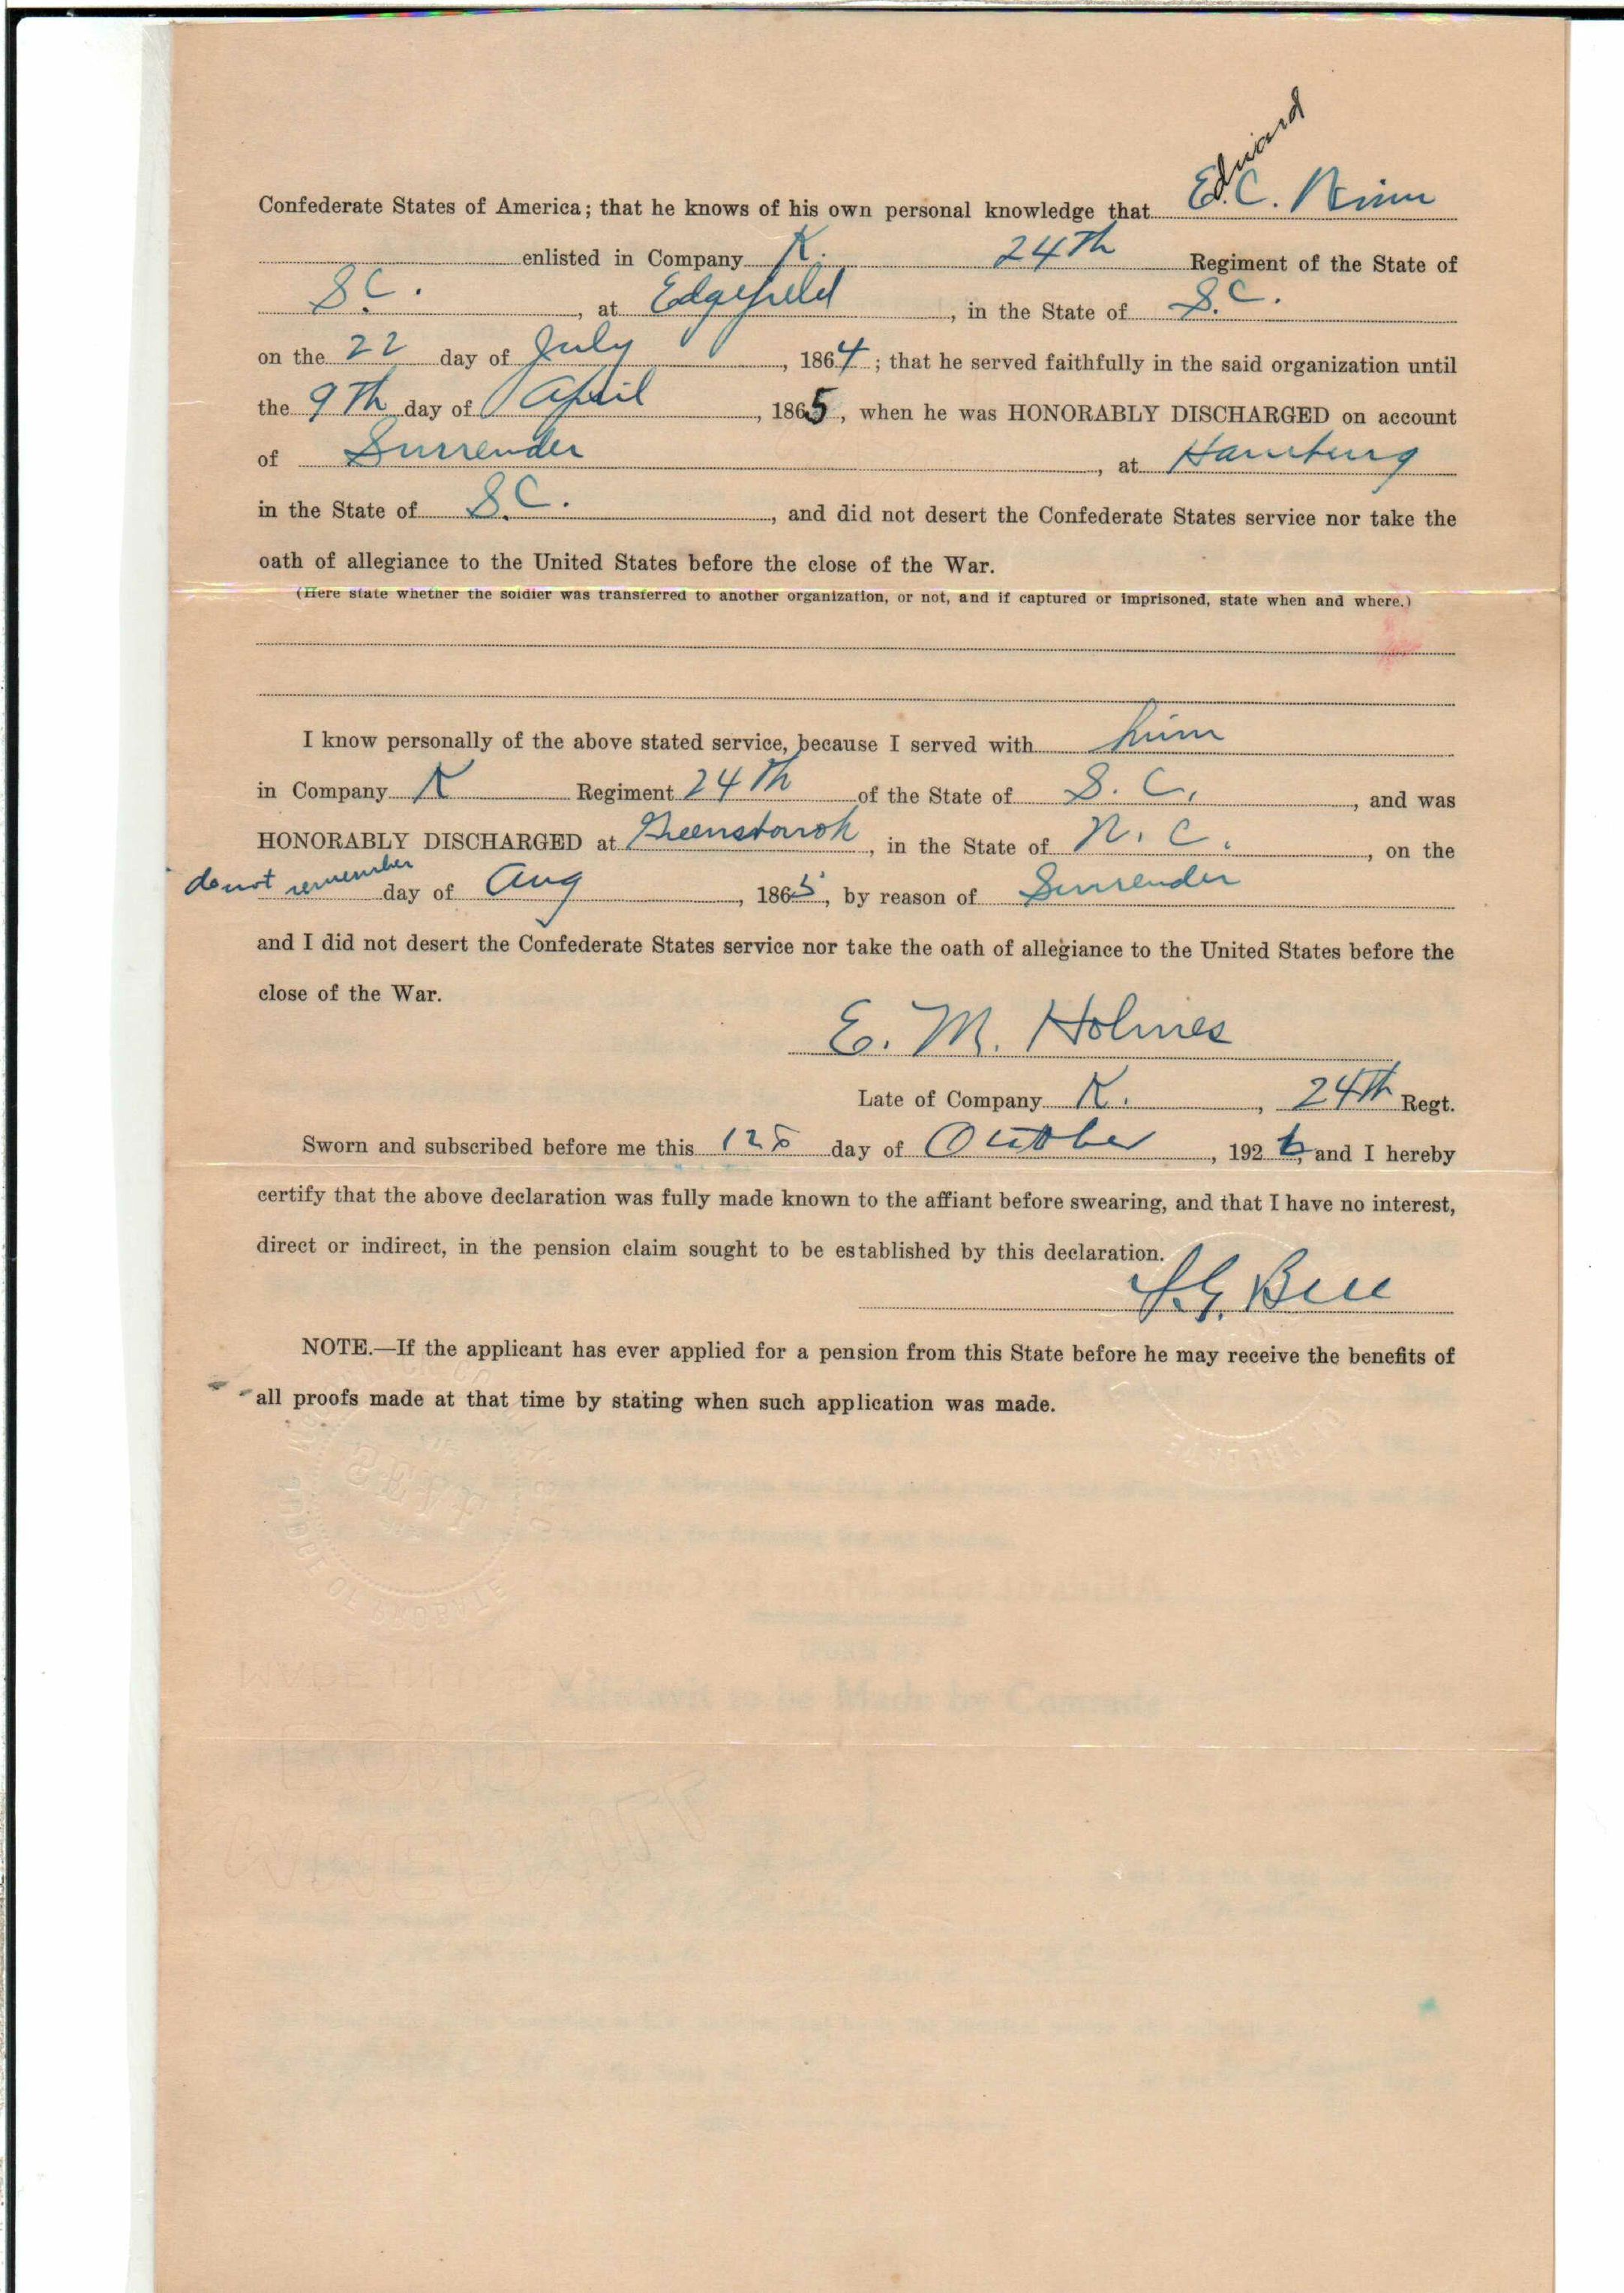 Edward
Confederate States of America; that he knows of his own personal knowledge that E. C.
enlisted in Company K. 24th Regiment of the State of
S.C. , at Edgefield , in the State of S.C.
on the 22 day of July , 1864 ; that he served faithfully in the said organization until
the 9th day of April , 1865 , when he was HONORABLY DISCHARGED on account
of Surrender , at Hamburg
in the State of S.C. , and did not desert the Confederate States service nor take the
oath of allegiance to the United States before the close of the War.
(Here state whether the soldier was transferred to another organization, or not, and if captured or imprisoned, state when and where.)
I know personally of the above stated service, because I served with him
in Company K Regiment 24th of the State of S. C. , and was
HONORABLY DISCHARGED at , in the State of N. C. , on the
do not remember day of Aug , 1865 , by reason of Surrender
and I did not desert the Confederate States service nor take the oath of allegiance to the United States before the
close of the War.
E. M. Holmes
Late of Company K. , 24th Regt.
Sworn and subscribed before me this day of October , 192 and I hereby
certify that the above declaration was fully made known to the affiant before swearing, and that I have no interest,
direct or indirect, in the pension claim sought to be established by this declaration.
NOTE.—If the applicant has ever applied for a pension from this State before he may receive the benefits of
all proofs made at that time by stating when such application was made.